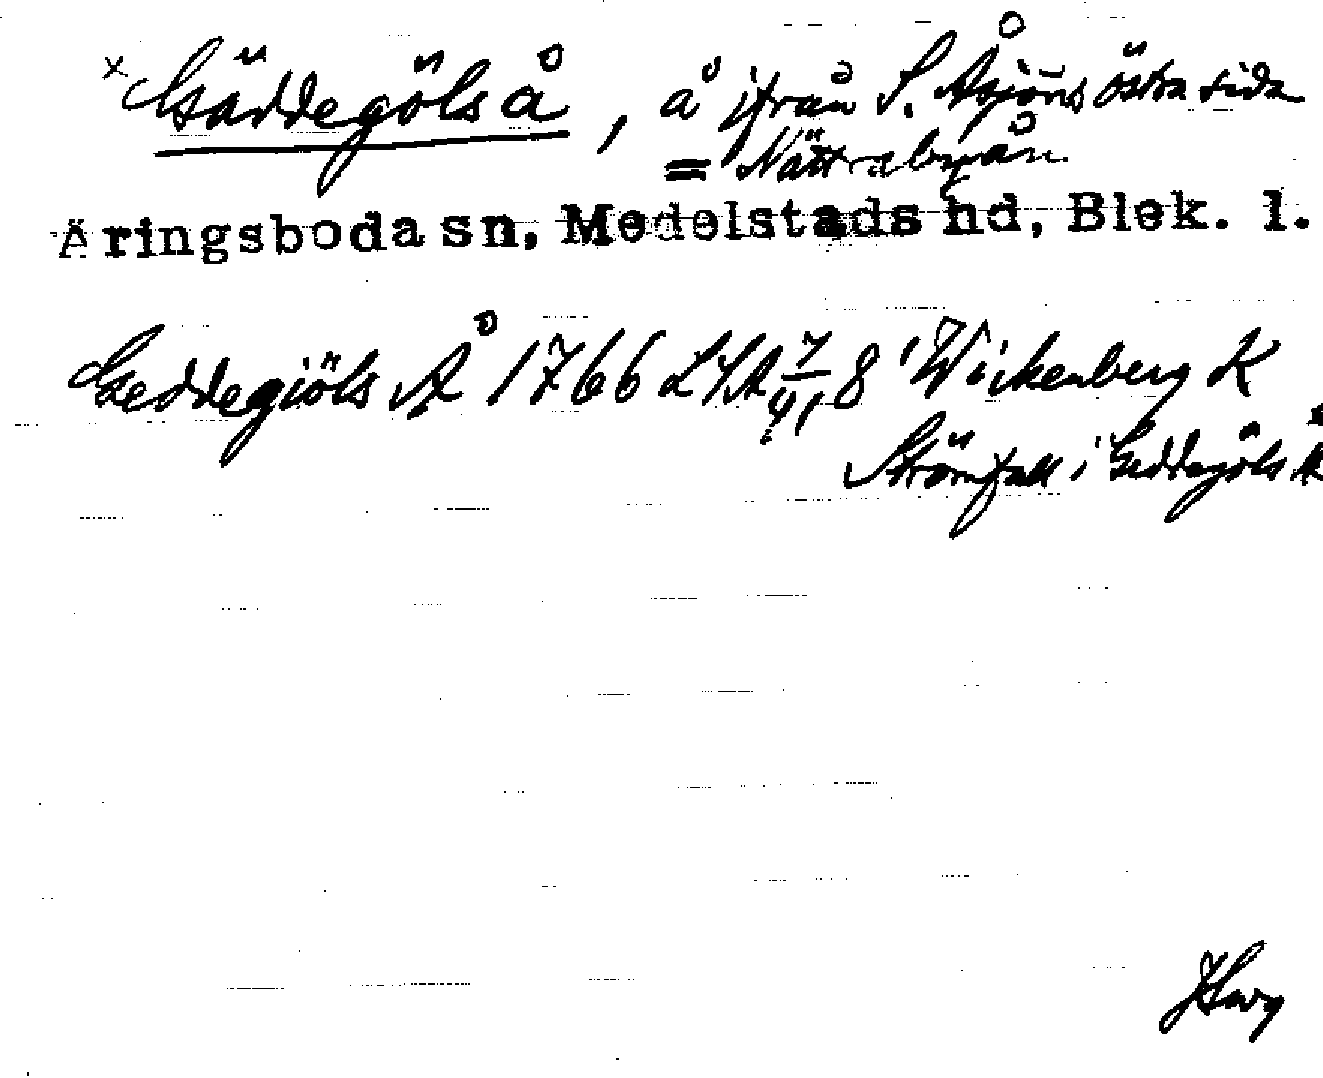 x Gäddegöls å, å ifrån S. Åsjöns östra sida
= Nättrabyån
Äringsboda sn, Medelstads hd, Blek. l.
Geddegiöls Å 1766 LSA 8 Wickenberg K
Strömfall i Geddegöls Å